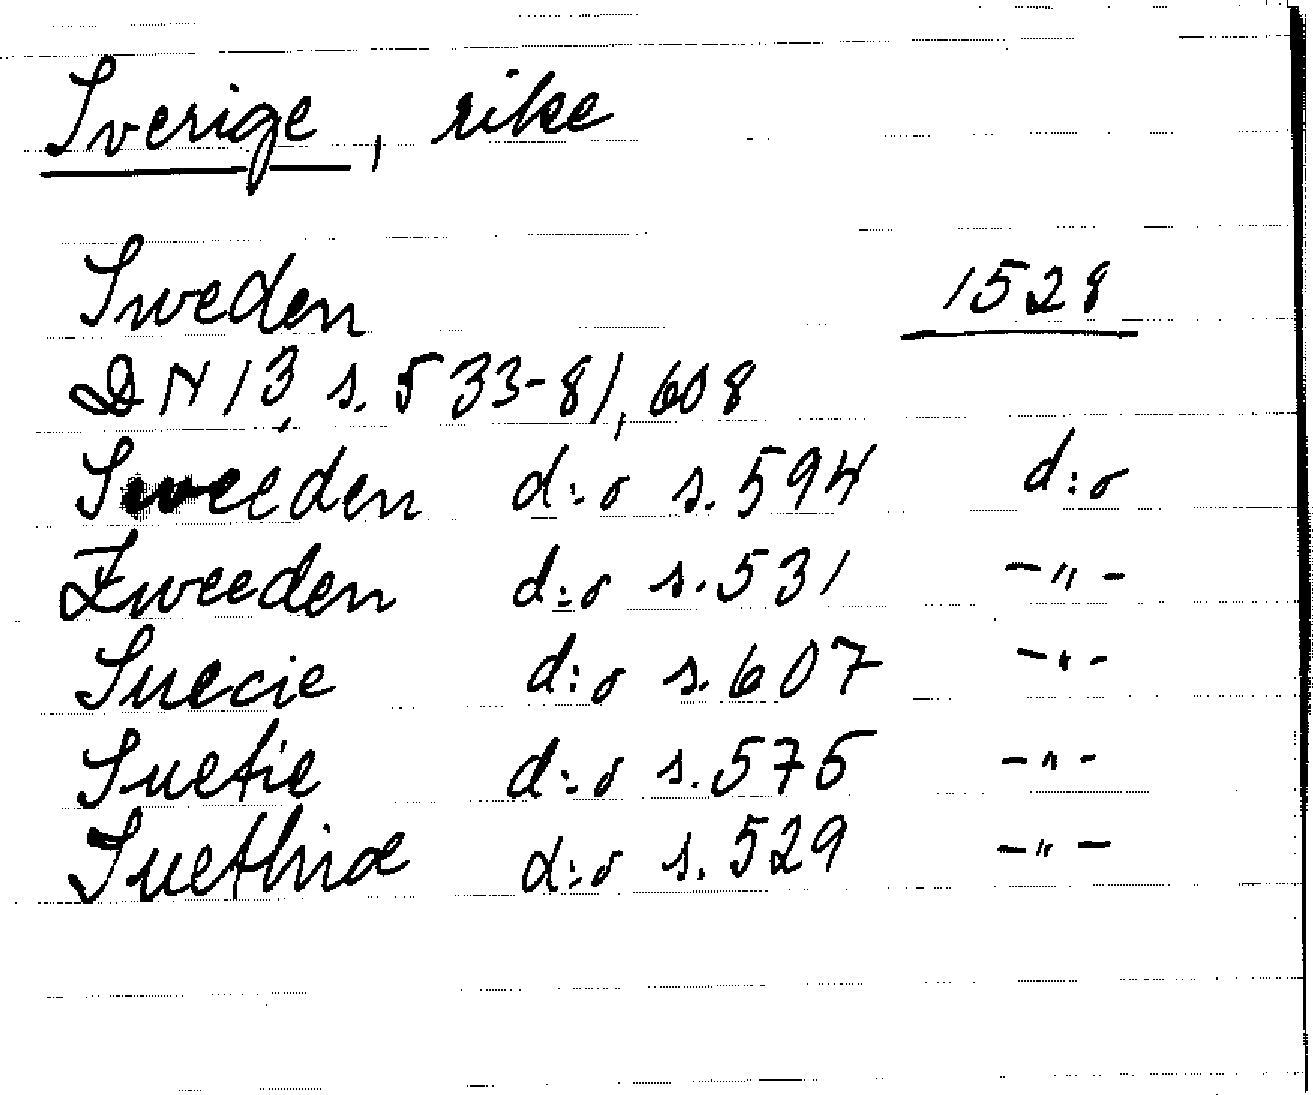 Sverige, rike
Sweden 1528
DN 13, s. 533-81, 608
Sweeden d:o s. 594 d:o
Zweeden d:o s. 531 -"-
Suecie d:o s. 607 -"-
Suetie d:o s. 575 -"-
Suethiæ d:o s. 529 -"-